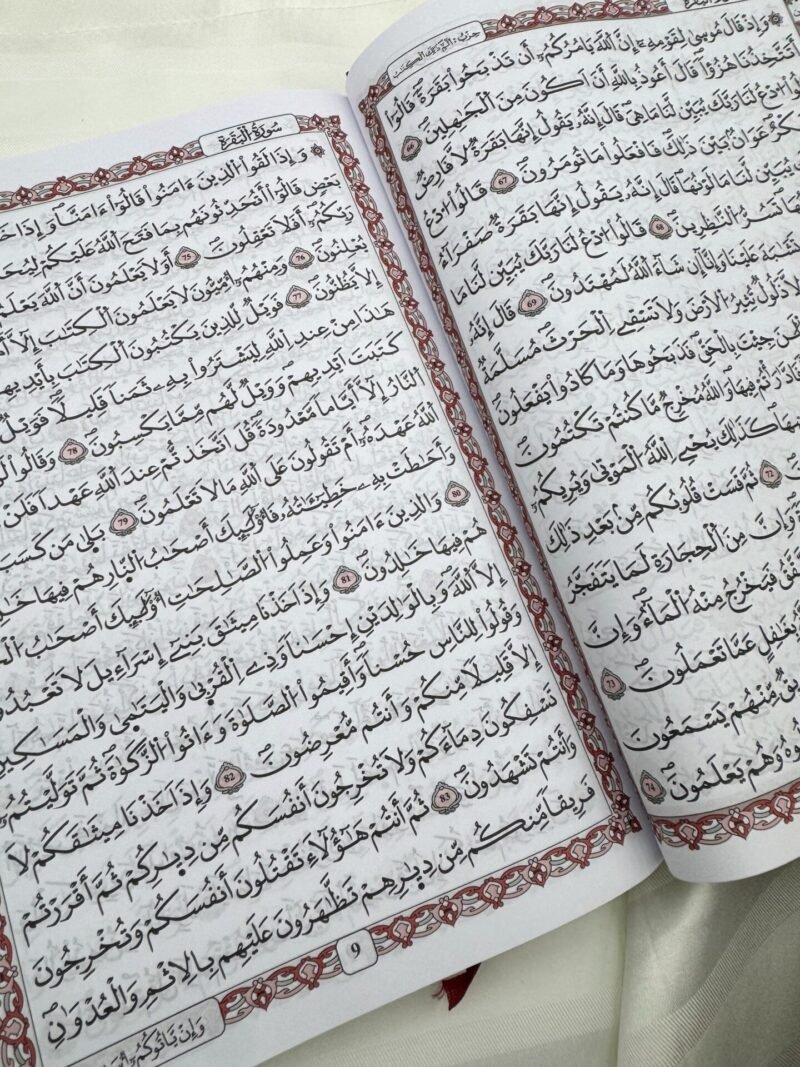 حِزْبُ : الم ذَلِكَ الْكِتَابُ
۞ وَإِذْ قَالَ مُوسَىٰ لِقَوْمِهِۦٓ إِنَّ ٱللَّهَ يَامُرُكُمُۥٓ أَن تَذْبَحُوا۟ بَقَرَةً قَالُوٓا۟
أَتَتَّخِذُنَا هُزُؤًا قَالَ أَعُوذُ بِٱللَّهِ أَنَ اَكُونَ مِنَ ٱلْجَٰهِلِينَ 66
ٱدْعُ لَنَا رَبَّكَ يُبَيِّن لَّنَا مَا هِىَ قَالَ إِنَّهُۥ يَقُولُ إِنَّهَا بَقَرَةٌ لَّا فَارِضٌ
بِكْرٌ عَوَانٌۢ بَيْنَ ذَٰلِكَ فَٱفْعَلُوا۟ مَا تُومَرُونَ 67 قَالُوا۟ ٱدْعُ
يُبَيِّن لَّنَا مَا لَوْنُهَا قَالَ إِنَّهُۥ يَقُولُ إِنَّهَا بَقَرَةٌ صَفْرَآءُ
تَسُرُّ ٱلنَّٰظِرِينَ 68 قَالُوا۟ ٱدْعُ لَنَا رَبَّكَ يُبَيِّن لَّنَا مَا
تَشَٰبَهَ عَلَيْنَا وَإِنَّآ إِن شَآءَ ٱللَّهُ لَمُهْتَدُونَ 69 قَالَ إِنَّهُۥ
لَّا ذَلُولٌ تُثِيرُ ٱلَارْضَ وَلَا تَسْقِے ٱلْحَرْثَ مُسَلَّمَةٌ
جِئْتَ بِٱلْحَقِّ فَذَبَحُوهَا وَمَا كَادُوا۟ يَفْعَلُونَ
فَٱدَّٰرَٰٔتُمْ فِيهَا وَٱللَّهُ مُخْرِجٌ مَّا كُنتُمْ تَكْتُمُونَ
كَذَٰلِكَ يُحْىِ ٱللَّهُ ٱلْمَوْتَىٰ وَيُرِيكُمُۥٓ
72 ثُمَّ قَسَتْ قُلُوبُكُم مِّنۢ بَعْدِ ذَٰلِكَ
وَإِنَّ مِنَ ٱلْحِجَارَةِ لَمَا يَتَفَجَّرُ
فَيَخْرُجُ مِنْهُ ٱلْمَآءُ وَإِنَّ
بِغَٰفِلٍ عَمَّا تَعْمَلُونَ 73
مِّنْهُمْ يَسْمَعُونَ
وَهُمْ يَعْلَمُونَ 74
سُورَةُ الْبَقَرَةِ
۞ وَإِذَا لَقُوا۟ ٱلذِينَ ءَامَنُوا۟ قَالُوٓا۟ ءَامَنَّا وَإِذَا
بَعْضٍ قَالُوٓا۟ أَتُحَدِّثُونَهُم بِمَا فَتَحَ ٱللَّهُ عَلَيْكُمْ
رَبِّكُمُۥٓ أَفَلَا تَعْقِلُونَ 75 أَوَلَا يَعْلَمُونَ أَنَّ ٱللَّهَ يَعْلَمُ
يُعْلِنُونَ 76 وَمِنْهُمُۥٓ أُمِّيُّونَ لَا يَعْلَمُونَ ٱلْكِتَٰبَ إِلَّآ
إِلَّا يَظُنُّونَ 77 فَوَيْلٌ لِّلذِينَ يَكْتُبُونَ ٱلْكِتَٰبَ بِأَيْدِيهِمْ
هَٰذَا مِنْ عِندِ ٱللَّهِ لِيَشْتَرُوا۟ بِهِۦ ثَمَنًا قَلِيلًا فَوَيْلٌ
كَتَبَتَ اَيْدِيهِمْ وَوَيْلٌ لَّهُم مِّمَّا يَكْسِبُونَ 78 وَقَالُوا۟
ٱلنَّارُ إِلَّآ أَيَّامًا مَّعْدُودَةً قُلَ اَتَّخَذتُّمْ عِندَ ٱللَّهِ عَهْدًا فَلَنْ
ٱللَّهُ عَهْدَهُۥٓ أَمْ تَقُولُونَ عَلَى ٱللَّهِ مَا لَا تَعْلَمُونَ 79 بَلَىٰ مَن كَسَبَ
وَأَحَٰطَتْ بِهِۦ خَطِيٓـَٰٔتُهُۥ فَأُو۟لَٰٓئِكَ أَصْحَٰبُ ٱلنَّارِ هُمْ فِيهَا
80 وَٱلذِينَ ءَامَنُوا۟ وَعَمِلُوا۟ ٱلصَّٰلِحَٰتِ أُو۟لَٰٓئِكَ أَصْحَٰبُ
هُمْ فِيهَا خَٰلِدُونَ 81 وَإِذَ اَخَذْنَا مِيثَٰقَ بَنِىٓ إِسْرَآءِيلَ لَا تَعْبُدُونَ
إِلَّا ٱللَّهَ وَبِٱلْوَٰلِدَيْنِ إِحْسَانًا وَذِى ٱلْقُرْبَىٰ وَٱلْيَتَٰمَىٰ وَٱلْمَسَٰكِينِ
وَقُولُوا۟ لِلنَّاسِ حُسْنًا وَأَقِيمُوا۟ ٱلصَّلَوٰةَ وَءَاتُوا۟ ٱلزَّكَوٰةَ ثُمَّ تَوَلَّيْتُمُۥٓ
إِلَّا قَلِيلًا مِّنكُمْ وَأَنتُم مُّعْرِضُونَ 82 وَإِذَ اَخَذْنَا مِيثَٰقَكُمْ لَا
تَسْفِكُونَ دِمَآءَكُمْ وَلَا تُخْرِجُونَ أَنفُسَكُم مِّن دِيَٰرِكُمْ ثُمَّ أَقْرَرْتُمْ
وَأَنتُمْ تَشْهَدُونَ 83 ثُمَّ أَنتُمْ هَٰٓؤُلَآءِ تَقْتُلُونَ أَنفُسَكُمْ وَتُخْرِجُونَ
فَرِيقًا مِّنكُم مِّن دِيَٰرِهِمْ تَظَّٰهَرُونَ عَلَيْهِم بِٱلِاثْمِ وَٱلْعُدْوَٰنِ
9
وَإِنْ يَّاتُوكُمُۥٓ